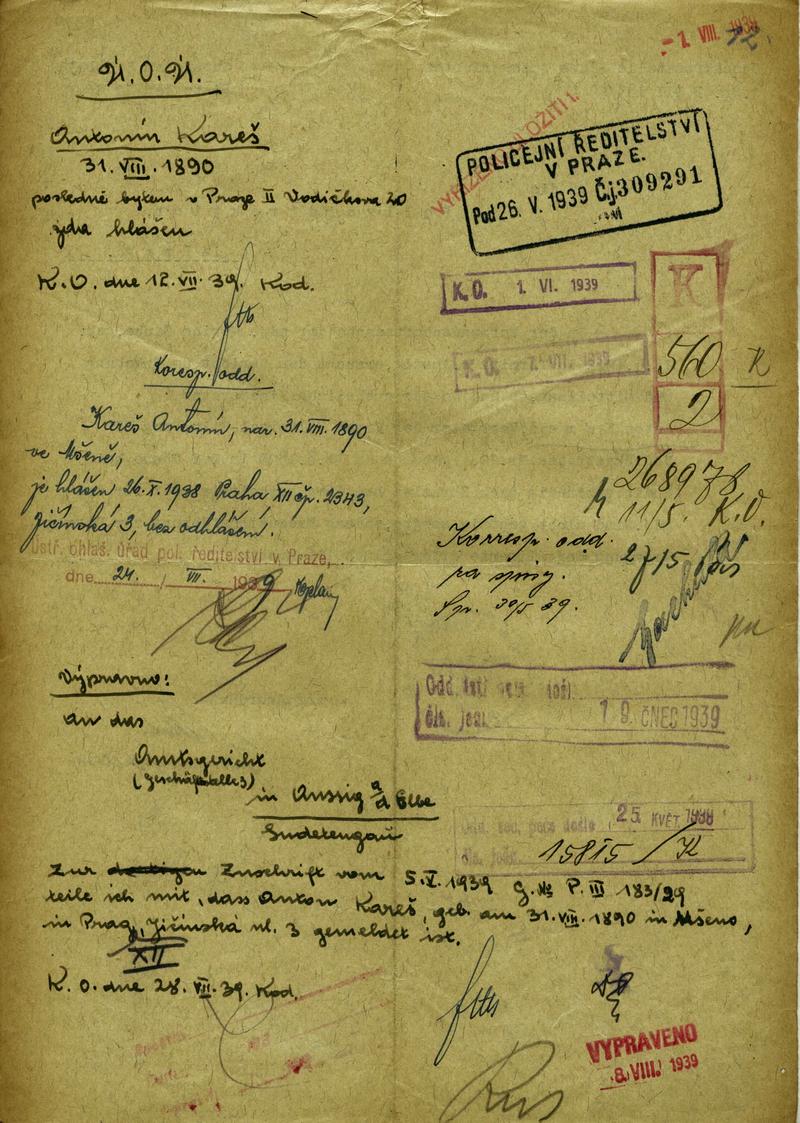 Ú.O.Ú.
Antonín Kareš
31. VIII. 1890
posledně bytem v Praze II Vodičkova 20
hlášen
K.O. dne 12. VII. 39. Kod.
Koresp. odd.
Kareš Antonín, nar. 31. VIII. 1890
ve Mšeně,
je hlášen 26. X. 1938 Praha XII čp. 2343,
Jičínská 3, bez odhlášení.
Ústř. ohlaš. úřad pol. ředitelství v Praze,
dne 24. / VII. 1939
Výpravna:
an das
Amtsgericht
(Geschäftsstelle 3)
in Aussig a/d Elbe
Sudetengau
Zur Zuschrift vom 5.V.1939 G.№ P. III 183/29
teile ich mit, dass Anton Kareš, geb. am 31. VIII. 1890 in Mšeno,
in Prag, Jičínská ul. 3 gemeldet ist.
XII
K. O. dne 28. VII. 39. Kod.
-1. VIII. 1939
POLICEJNÍ ŘEDITELSTVÍ
V PRAZE.
Pod 26. V. 1939 Čj. 309291
K. O. 1. VI. 1939
K
K. O. VII. 1939
560 K
2
268978
11/5. K.O.
Korresp. odd.
27/5
Sp. 30/5 39.
19. ČNEC 1939
25. KVĚT 1939
došlo
15815 / K
VYPRAVENO
8. VIII. 1939